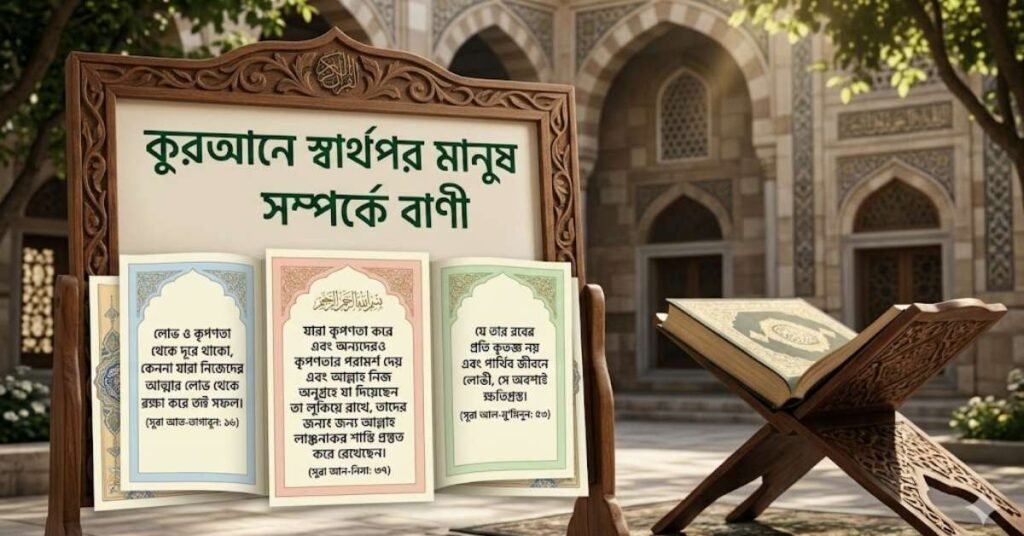 কুরআনে স্বার্থপর মানুষ
সম্পর্কে বাণী
লোভ ও কৃপণতা
থেকে দূরে থাকো,
কেননা যারা নিজেদের
আত্মার লোভ থেকে
রক্ষা করে তাই সফল।
(সূরা আত-তাগাবুন: ১৬)
بسم الله الرحمن الرحيم
যারা কৃপণতা করে
এবং অন্যদেরও
কৃপণতার পরামর্শ দেয়
এবং আল্লাহ নিজ
অনুগ্রহে যা দিয়েছেন
তা লুকিয়ে রাখে, তাদের
জন্যং জন্য আল্লাহ
লাঞ্ছনাকর শাস্তি প্রস্তুত
করে রেখেছেন।
(সূরা আন-নিসা: ৩৭)
যে তার রবের
প্রতি কৃতজ্ঞ নয়
এবং পার্থিব জীবনে
লোভী, সে অবশ্যই
ক্ষতিগ্রস্ত।
(সূরা আল-মু'মিনুন: ৫৩)